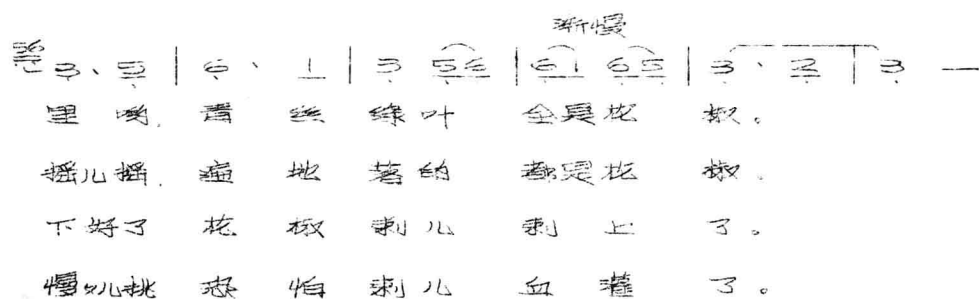 渐慢
3、 5 | 6、 1 | 3 56 | 61 65 | 3、 2 | 3 —
里 哟, 青 丝 绿 叶 全是花 椒。
摇儿摇, 遍 地 落 的 都是花 椒。
下好了 花 椒 刺 儿 刺 上 了。
慢儿挑 恐 怕 刺 儿 血 灌 了。